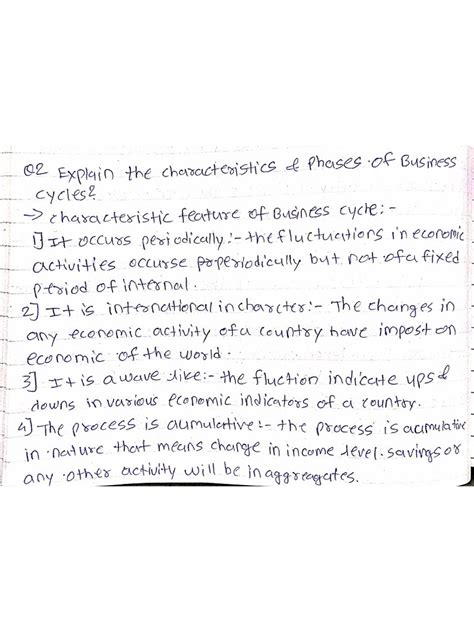 Q2 Explain the characteristics & Phases of Business
cycles?
→ characteristic feature of Business cycle:-
1] It occurs periodically:- the fluctuations in economic
activities occurse poperiodically but not of a fixed
period of internal.
2] It is international in charcter:- The changes in
any economic activity of a country have impost on
economic of the world.
3] It is a wave like:- the fluction indicate ups &
downs in various economic indicators of a country.
4] The process is aumulative:- the process is acumulative
in nature that means change in income level. savings or
any other activity will be in aggreagates.